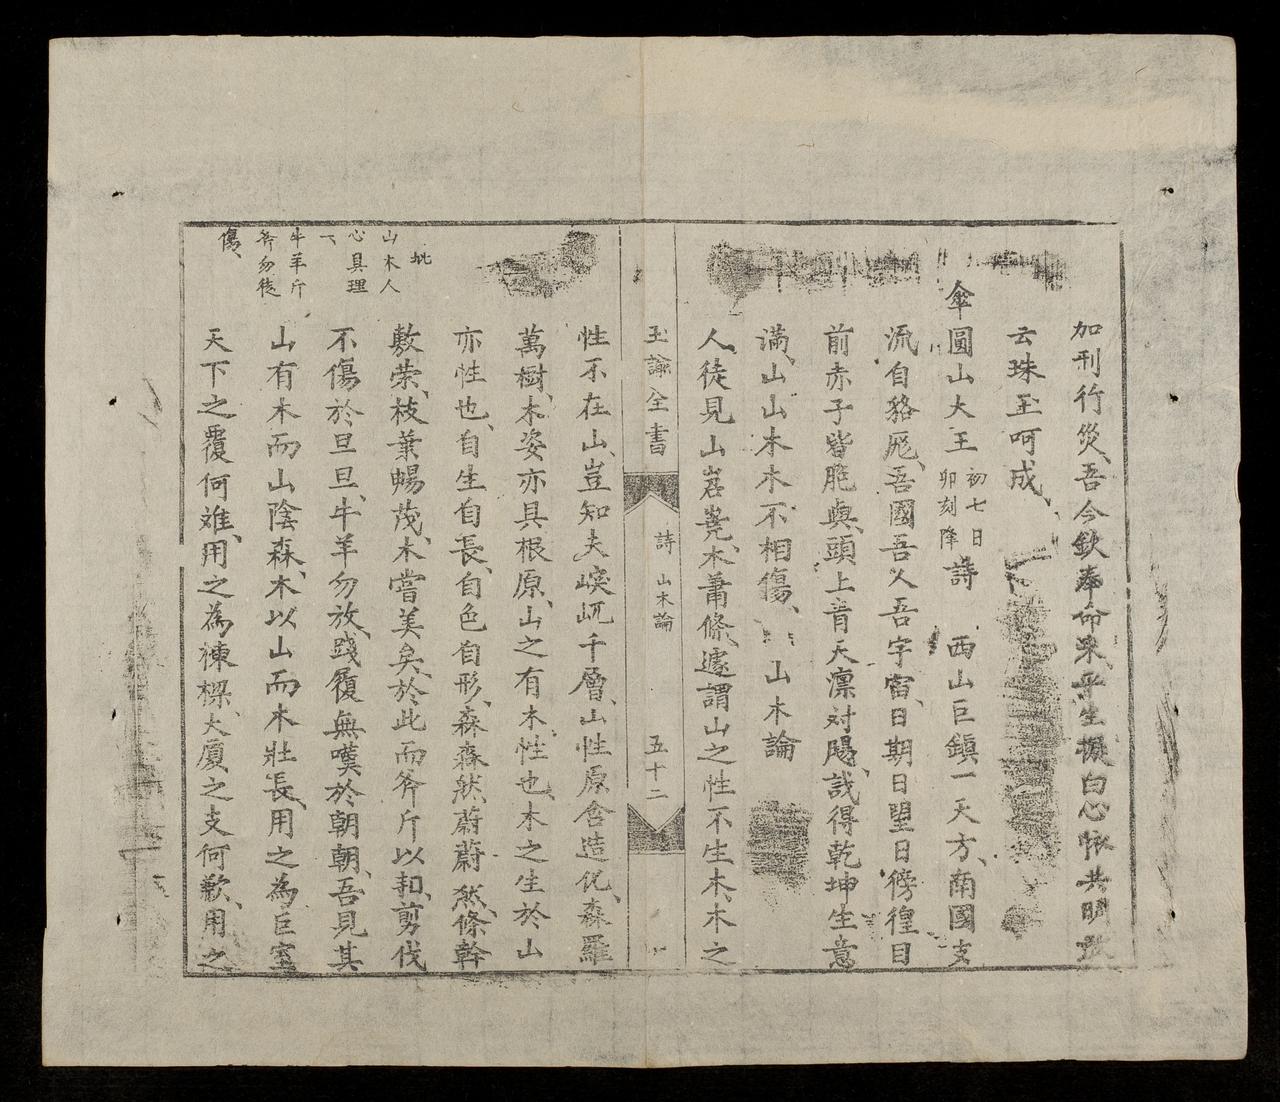 加刊行災、吾今欽奉命來乎生撫白心怀共明
云珠玉呵成、
傘圓山大王 初七日卯刻降 詩 西山巨鎮一天方、南國支
流自貉厖、吾國吾人吾宇宙、日期日望日徬徨目
前赤子皆胞與、頭上青天凛対颺、哉得乾坤生意
滿、山山木木不相傷、 山木論
人徒見山嵓嶤、木蕭條、遽謂山之性不生木、木之
玉諭全書
詩 山木論
五十二
性不在山、豈知夫峻屼千層、山性原含造化、森羅
萬樹、木姿亦具根原、山之有木、性也、木之生於山
亦性也、自生自長、自色自形、森森然、蔚蔚然、條幹
敷荣、枝葉暢茂、木嘗美矣、於此而斧斤以却、剪伐
不傷於旦旦、牛羊勿放、踐履無嘆於朝朝、吾見其
山有木而山陰森、木以山而木壯長、用之為巨室
天下之覆何难、用之為棟樑、大廈之支何歉、用之
批
山木人
心具理
一、
牛羊斤
斧勿徒
傷、